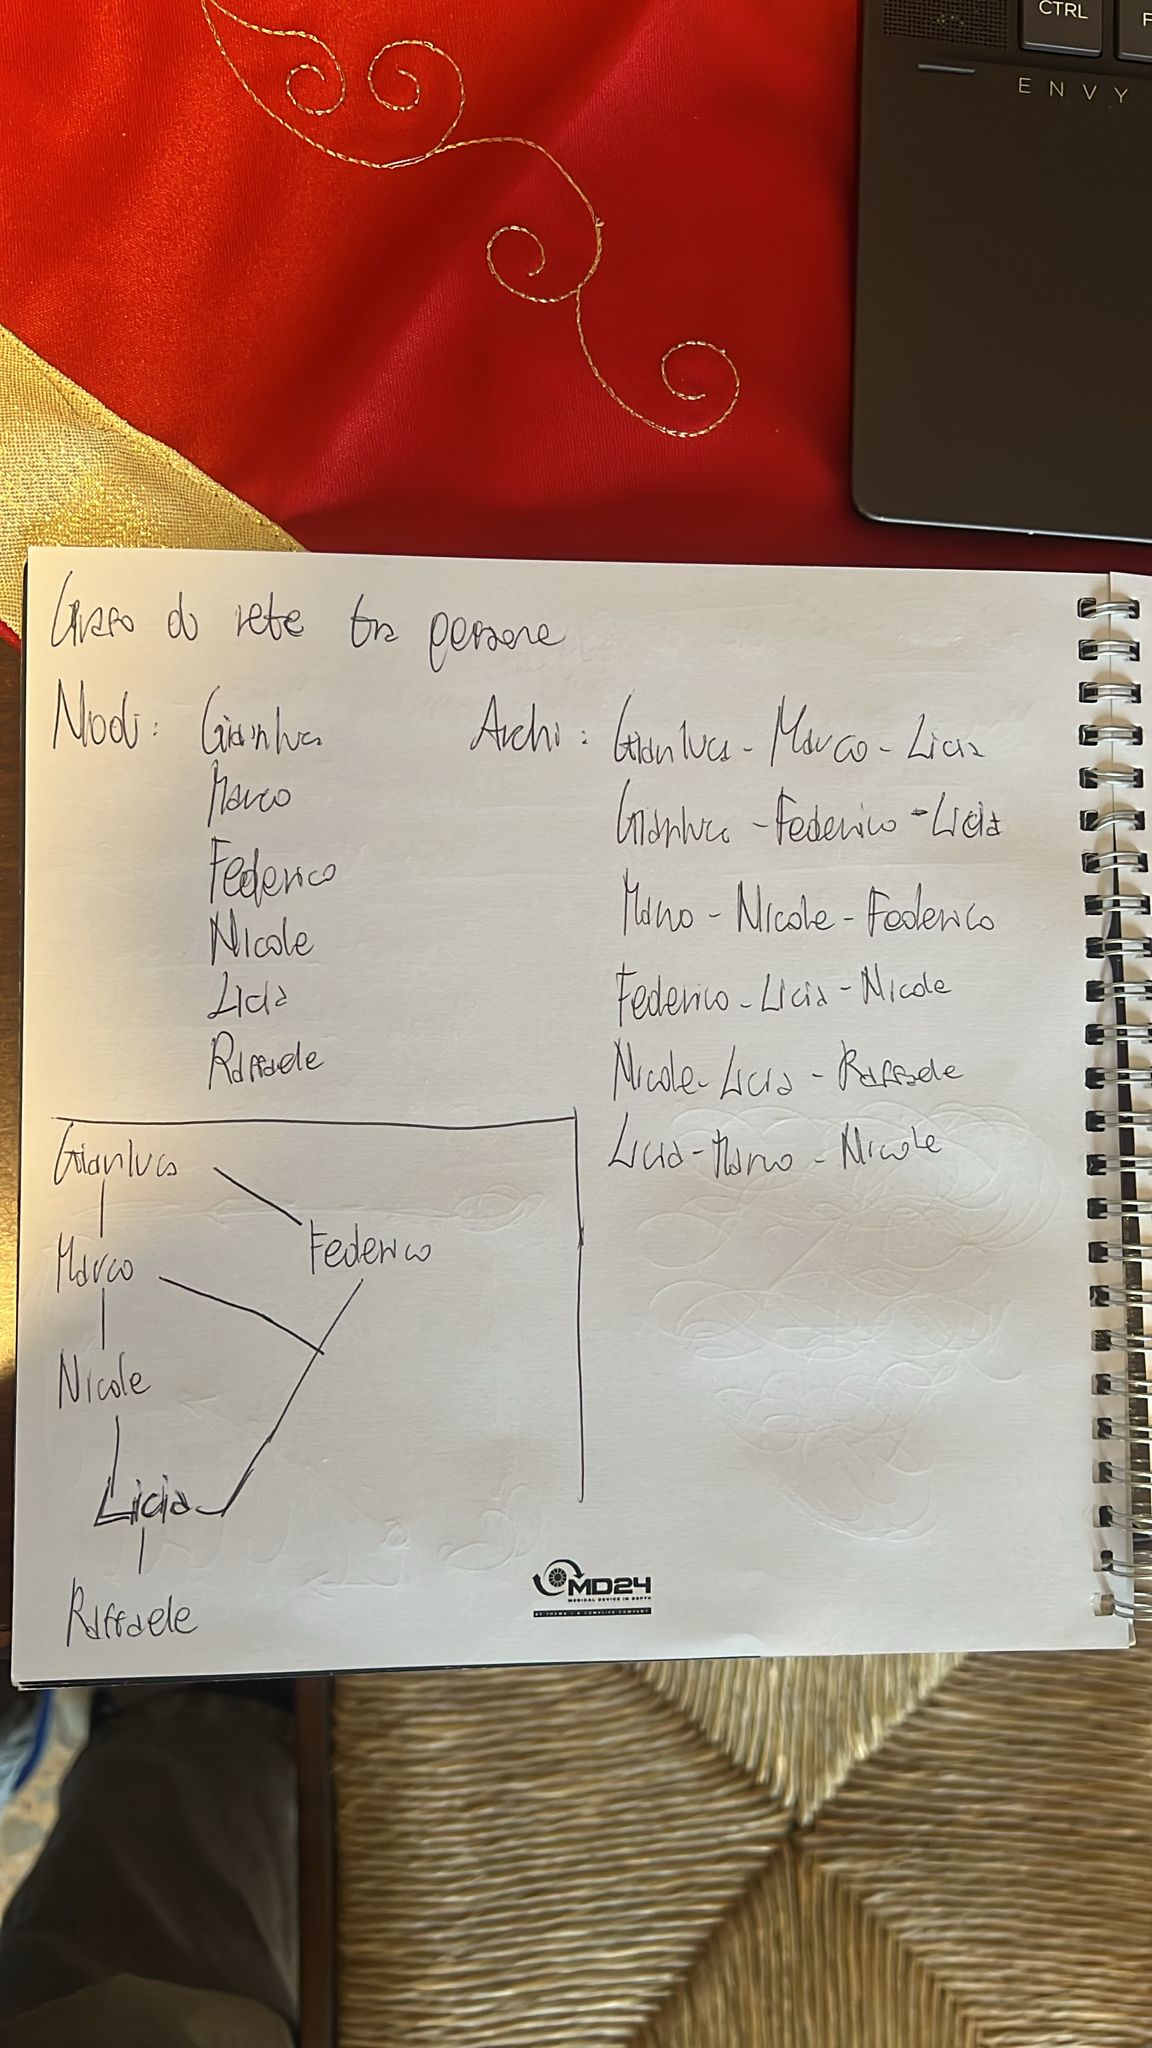 CTRL
F
ENVY
Grafo di rete tra persone
Nodi: Gianluca
Marco
Federico
Nicole
Licia
Raffaele
Archi: Gianluca - Marco - Licia
Gianluca - Federico - Licia
Marco - Nicole - Federico
Federico - Licia - Nicole
Nicole - Licia - Raffaele
Licia - Marco - Nicole
Gianluca
Federico
Marco
Nicole
Licia
Raffaele
MD24
MEDICAL DEVICE IN DEPTH
BY THEMA - A COMPLIFE COMPANY